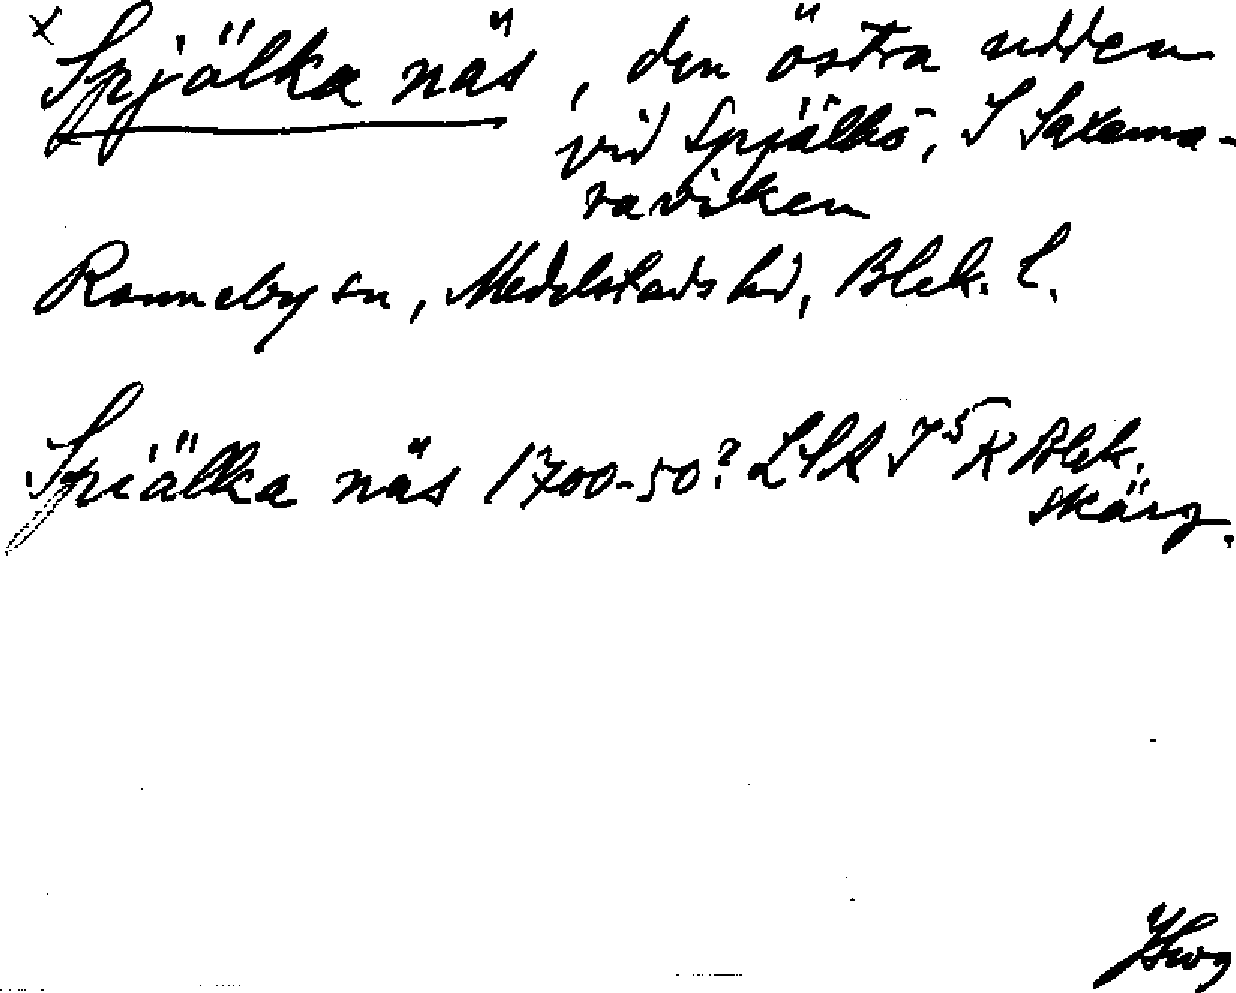 x Spjälka näs, den östra udden
vid Spjälkö, I Saxema-
raviken
Ronneby sn, Medelstads hd, Blek. l.
Spiälka näs 1700-50? LSA Blek.
skärg.